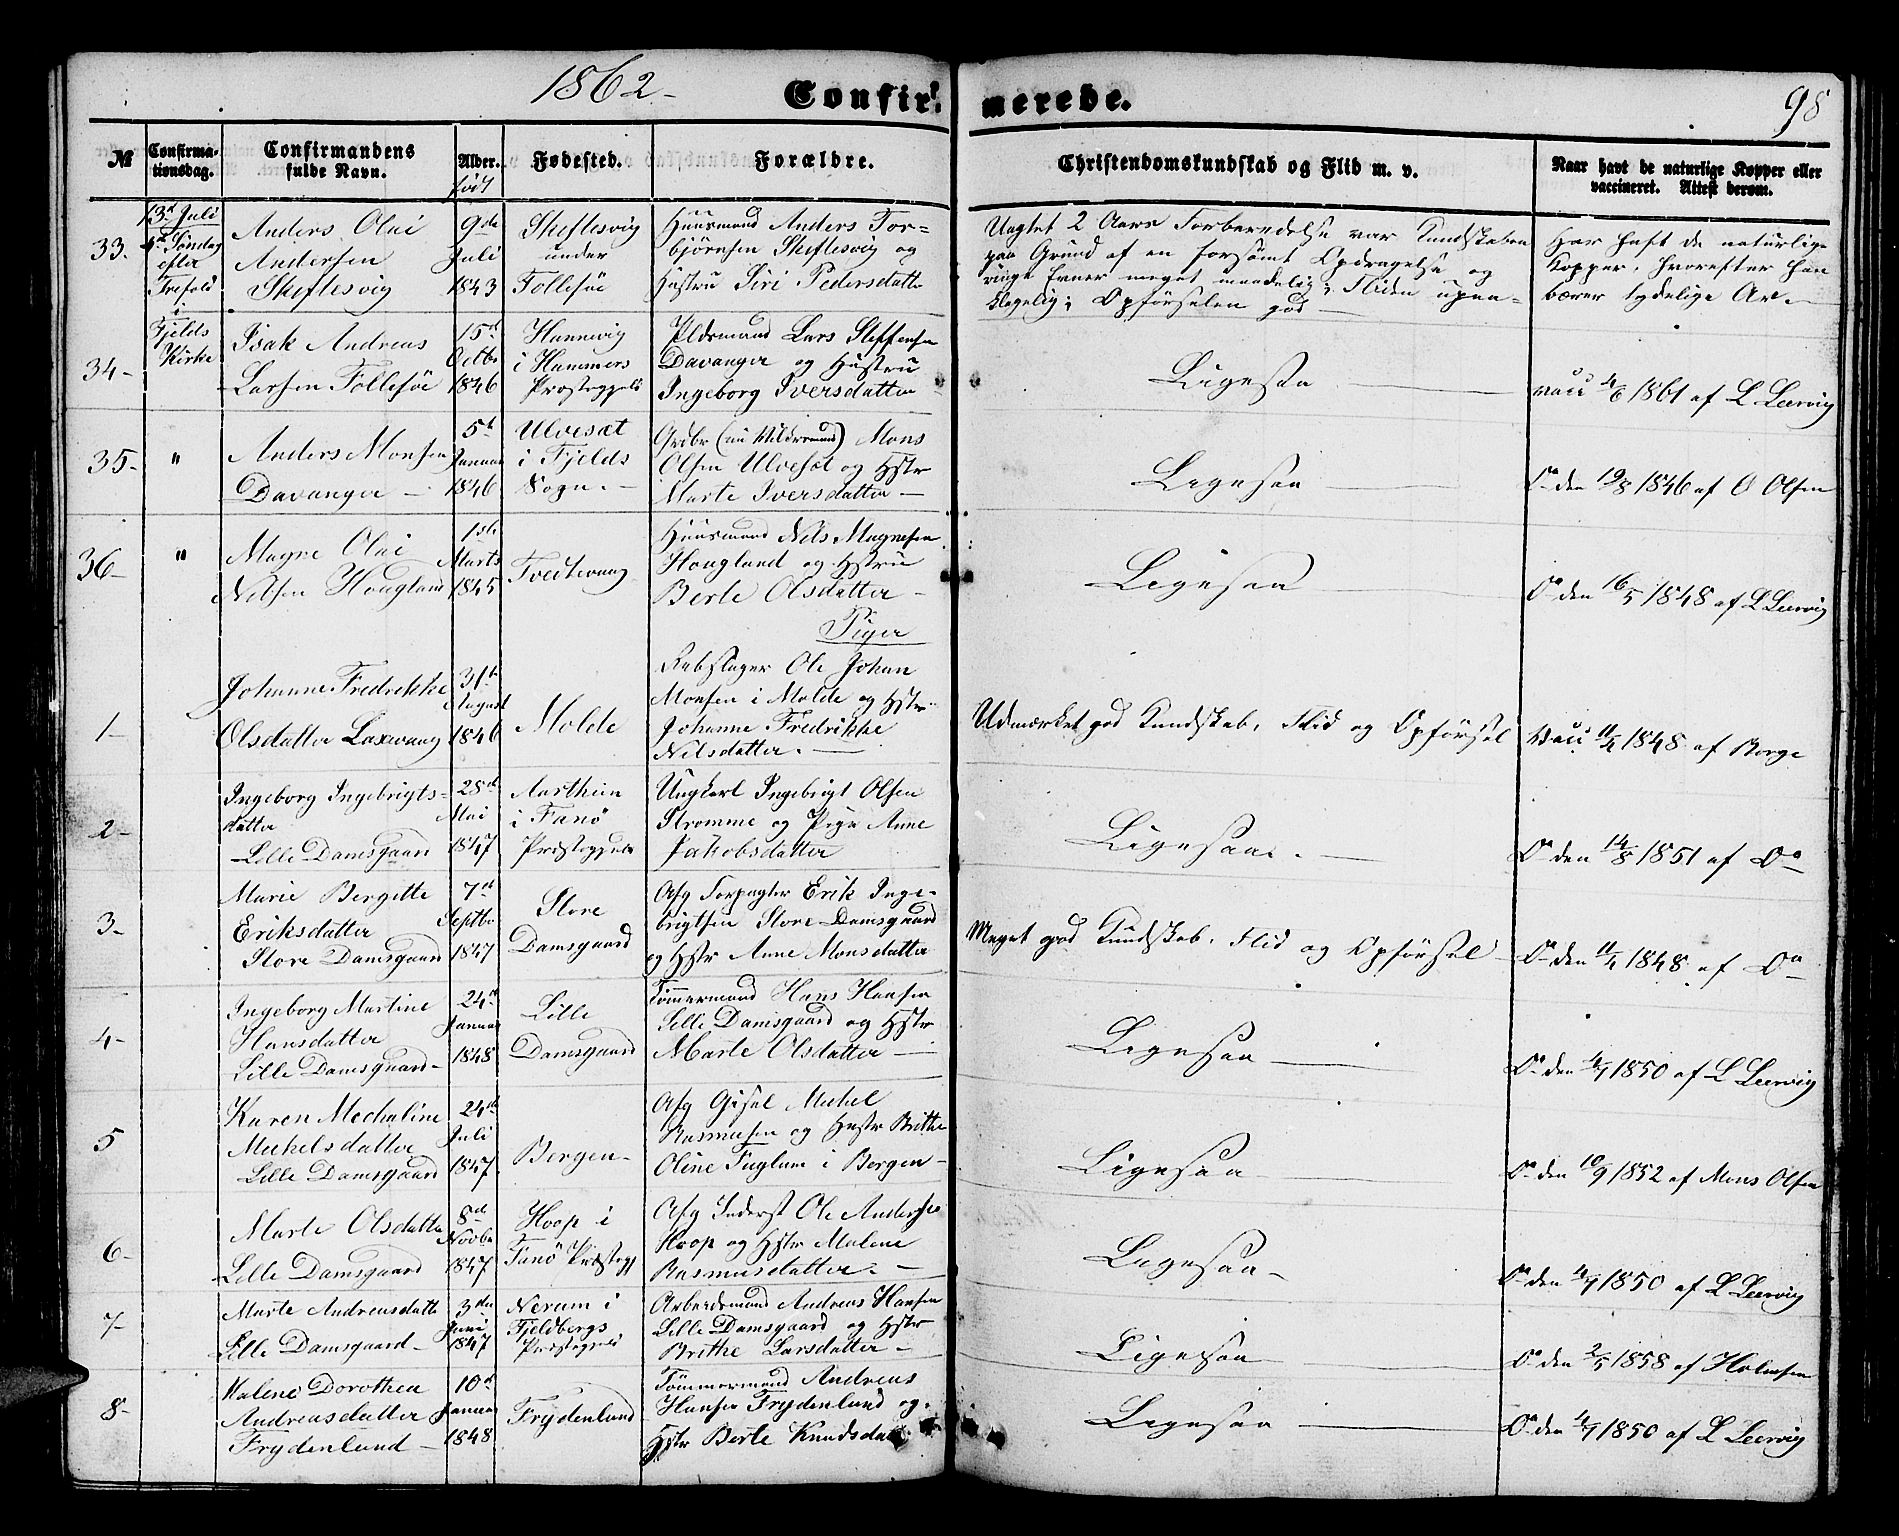 1862-
Confir-
merede.
98
№
Confirma-
tionsdag.
Confirmandens
fulde Navn.
Alder.
født
Fødested.
Forældre.
Christendomskundskab og Flid m. v.
Naar havt de naturlige Kopper eller
vaccineret. Attest derom.
33.
13d Juli
4de Søndag
efter
Trefold
i
Fjelds
Kirke
Anders Olai
Andersen
Skiftesvig
9de
Juli
1843
Skiftesvig
under
Follesöe
Huusmand Anders Tor-
björnsen Skiftesvig og
Hustru Siri Pedersdatter
Uagtet 2 Aars Forberedelse var Kundskaben
paa Grund af en forsömt Opdragelse og
ringe Evner meget maadelig; Fliden upaa-
klagelig; Opförselen god
Har haft de naturlige
Kopper, hvorefter han
bærer tydelige Ar.
34-
Isak Andreas
Larsen Follesöe
15d
Octbr
1846
Hannevig
i Hammers
Præstegjeld
Lars Steffensen
Davanger og Hustru
Ingeborg Iversdatter
Ligesaa
vacc 4/6 1861 af L Leervig
35-
"
Anders Monsen
Davanger -
5te
Januar
1846
Ulvesæt
i Fjelds
Sogn. -
Grdbr (nu Kildemand) Mons
Olsen Ulvesæt og Hstr
Marte Iversdatter -
Ligesaa
Do den 19/8 1846 af O Olsen
36-
"
Magne Olai
Nilsen Hougland
1ste
Marts
1845
Tvedtevaag
Huusmand Nils Magnesen
Hougland og Hstru
Berte Olsdatter -
Ligesaa
Do den 16/5 1848 af L Leervig
Piger
1-
Johanne Fredrikke
Olsdatter Laxevaag
31te
August
1846
Molde
Rebslager Ole Johan
Monsen i Molde og Hstr.
Johanne Fredrikke
Nilsdatter. -
Udmærket god Kundskab, Flid og Opförsel
Vacc 11/4 1848 af Borge
2-
Ingeborg Ingebrigts-
datter
Lille Damsgaard
28de
Mai
1847
Aartheim
i Fanö
Præstegjeld
Ungkarl Ingebrigt Olsen
Stromme og Pige Anne
Jakobsdatter
Ligesaa. -
Do den 14/8 1851 af Do
3-
Marie Bergitte
Eriksdatter
Store Damsgaard
7de
Septbr
1847
Store
Damsgaard
Afg Forpagter Erik Inge-
brigtsen Store Damsgaard
og Hstr Anne Monsdatter
Meget god Kundskab, Flid og Opförsel -
Do den 11/4 1848 af Do
4-
Ingeborg Martine
Hansdatter
Lille Damsgaard-
24de
Januar
1848
Lille
Damsgaard
Tömmermand Hans Hansen
Lille Damsgaard og Hstr
Marte Olsdatter -
Ligesaa
Do den 4/7 1850 af L Leervig
5
Karen Mechaline
Mikkelsdatter
Lille Damsgaard
24de
Juli
1847
Bergen-
Afg Michel
Rasmusen og Hustr Brithe
Oline Fuglum i Bergen-
Ligesaa
Do den 10/9 1852 af Mons Olsen
6-
Marte Olsdatter
Lille Damsgaard
8de
Novbr
1847
Hoop i
Fanö Præstegj
Afg Inderst Ole Andersen
Hoop og Hstr Malene
Rasmusdatter. -
Ligesaa-
Do den 4/7 1850 af L Leervig
7-
Marte Andreasdatter
Lille Damsgaard-
3die
Juni
1847
Nerum i
Fjeldbergs
Præstegjeld
Arbeidsmand Andreas Hansen
Lille Damsgaard og Hstr
Brithe Larsdatter -
Ligesaa
Do den 2/5 1858 af Holmsen
8-
Malene Dorothea
Andreasdatter
Frydenlund -
10de
Januar
1848
Frydenlund
Tömmermand Andreas
Hansen Frydenlund og
Hstr Berte Knudsdatter
Ligesaa
Do den 4/7 1850 af L Leervig